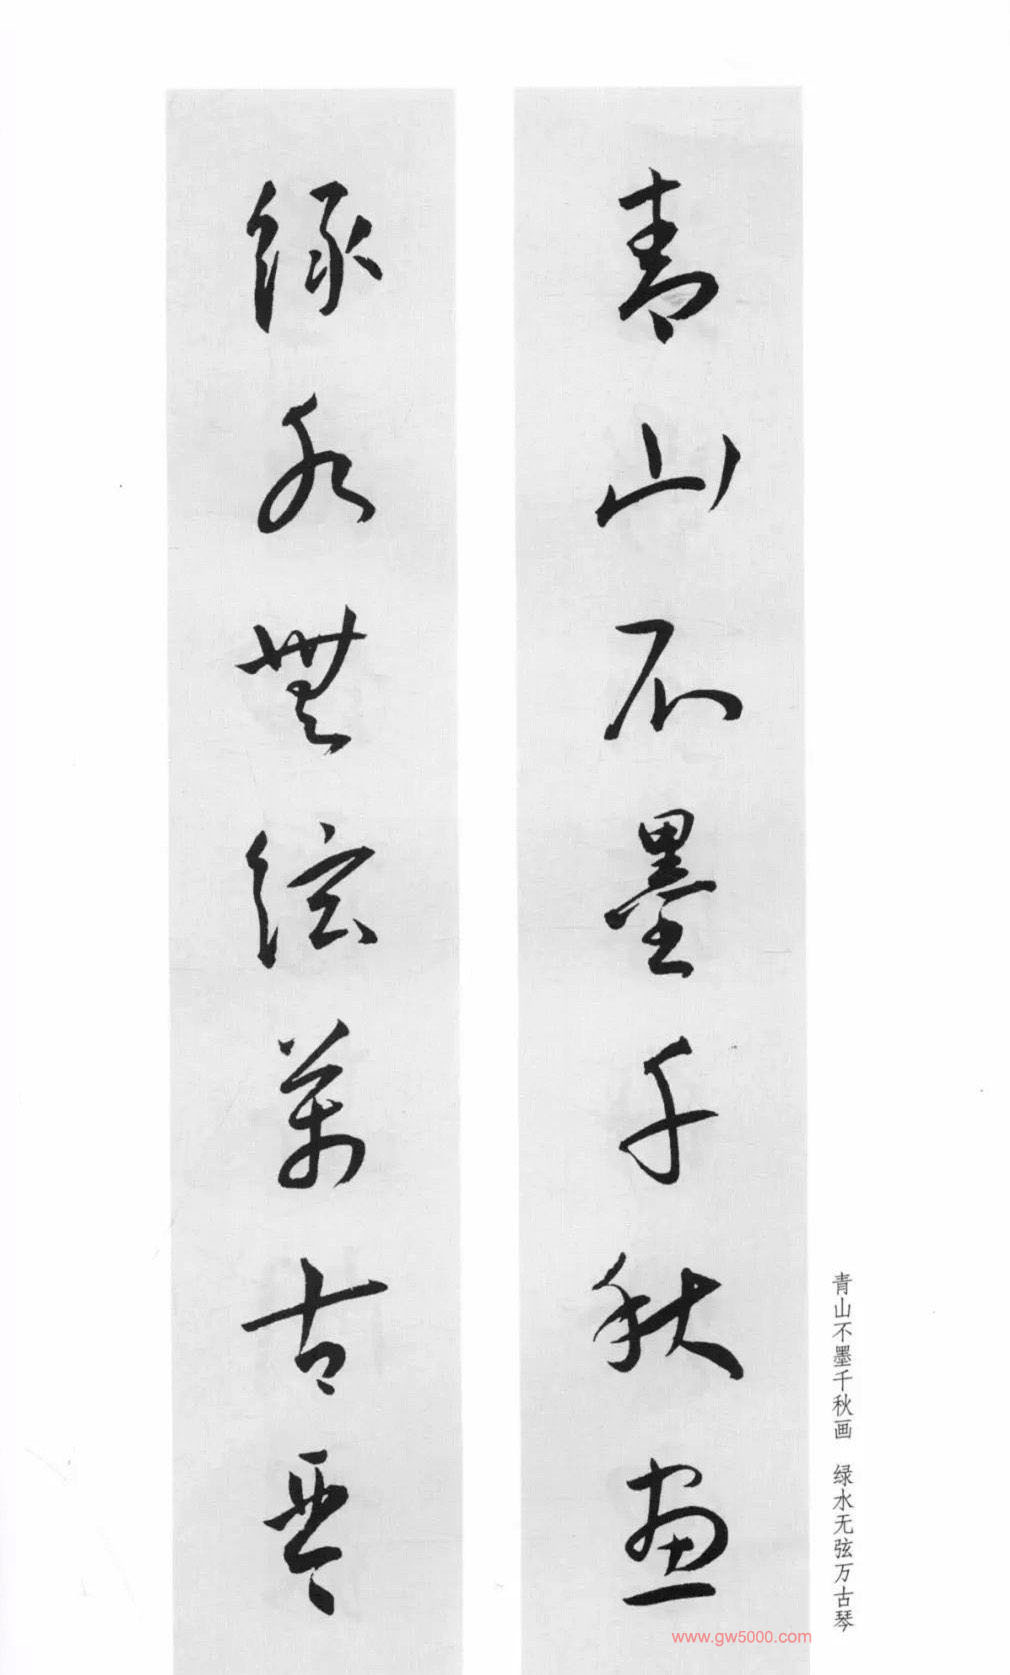 青山不墨千秋畫
緑水無絃萬古琴
青山不墨千秋画 绿水无弦万古琴
www.gw5000.com